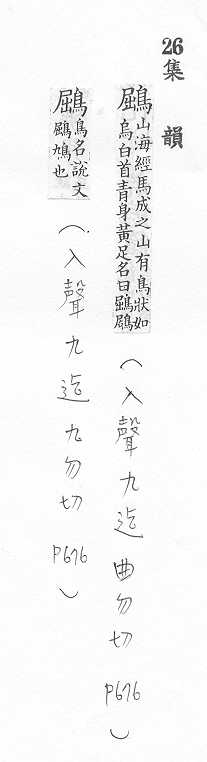 26
集韻
鶌山海經馬成之山有鳥狀如
烏白首青身黃足名曰鶌鶋
(入聲九迄 曲勿切 P676)
鶌鳥名說文
鶌鳩也
(入聲九迄 九勿切 P676)